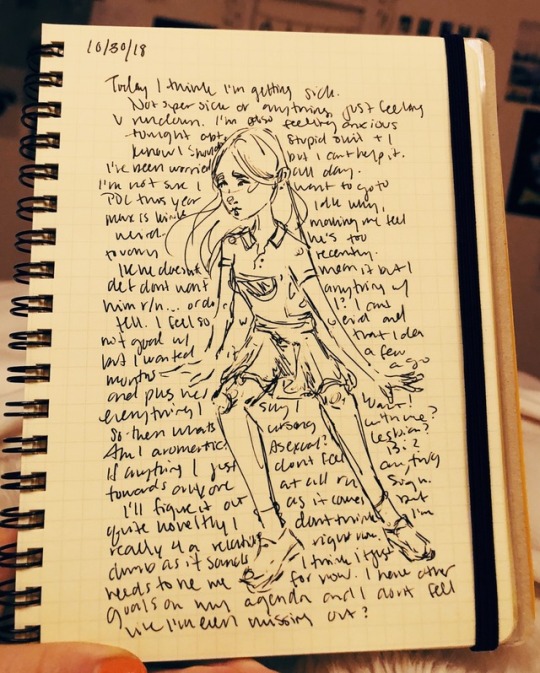 10/30/18
Today I think I'm getting sick.
Not super sick or anything, just feeling
v rundown. I'm also feeling anxious
tonight abt stupid shit + I
know I should but I can't help it.
I've been worried all day.
I'm not sure I want to go to
PDL this year Idk why,
max is kinda making me feel
weird. he's too
recently.
like he doesn't mean it but I
def dont want anything w/
him r/n... or do I? I can't
tell. I feel so weird and
not good w/ that idea
but I wanted it a few
months ago
and plus he's
everything I say I want!
So then whats wrong with me?
Am I aromantic? Asexual? Lesbian?
If anything I just dont feel anything
towards anyone at all rn
I'll figure it out as it comes
quite honestly I dont think but
really 4 a relationship right now. I'm
dumb as it sounds I think it just
needs to be me for now. I have other
goals on my agenda and I dont feel
like I'm even missing out?